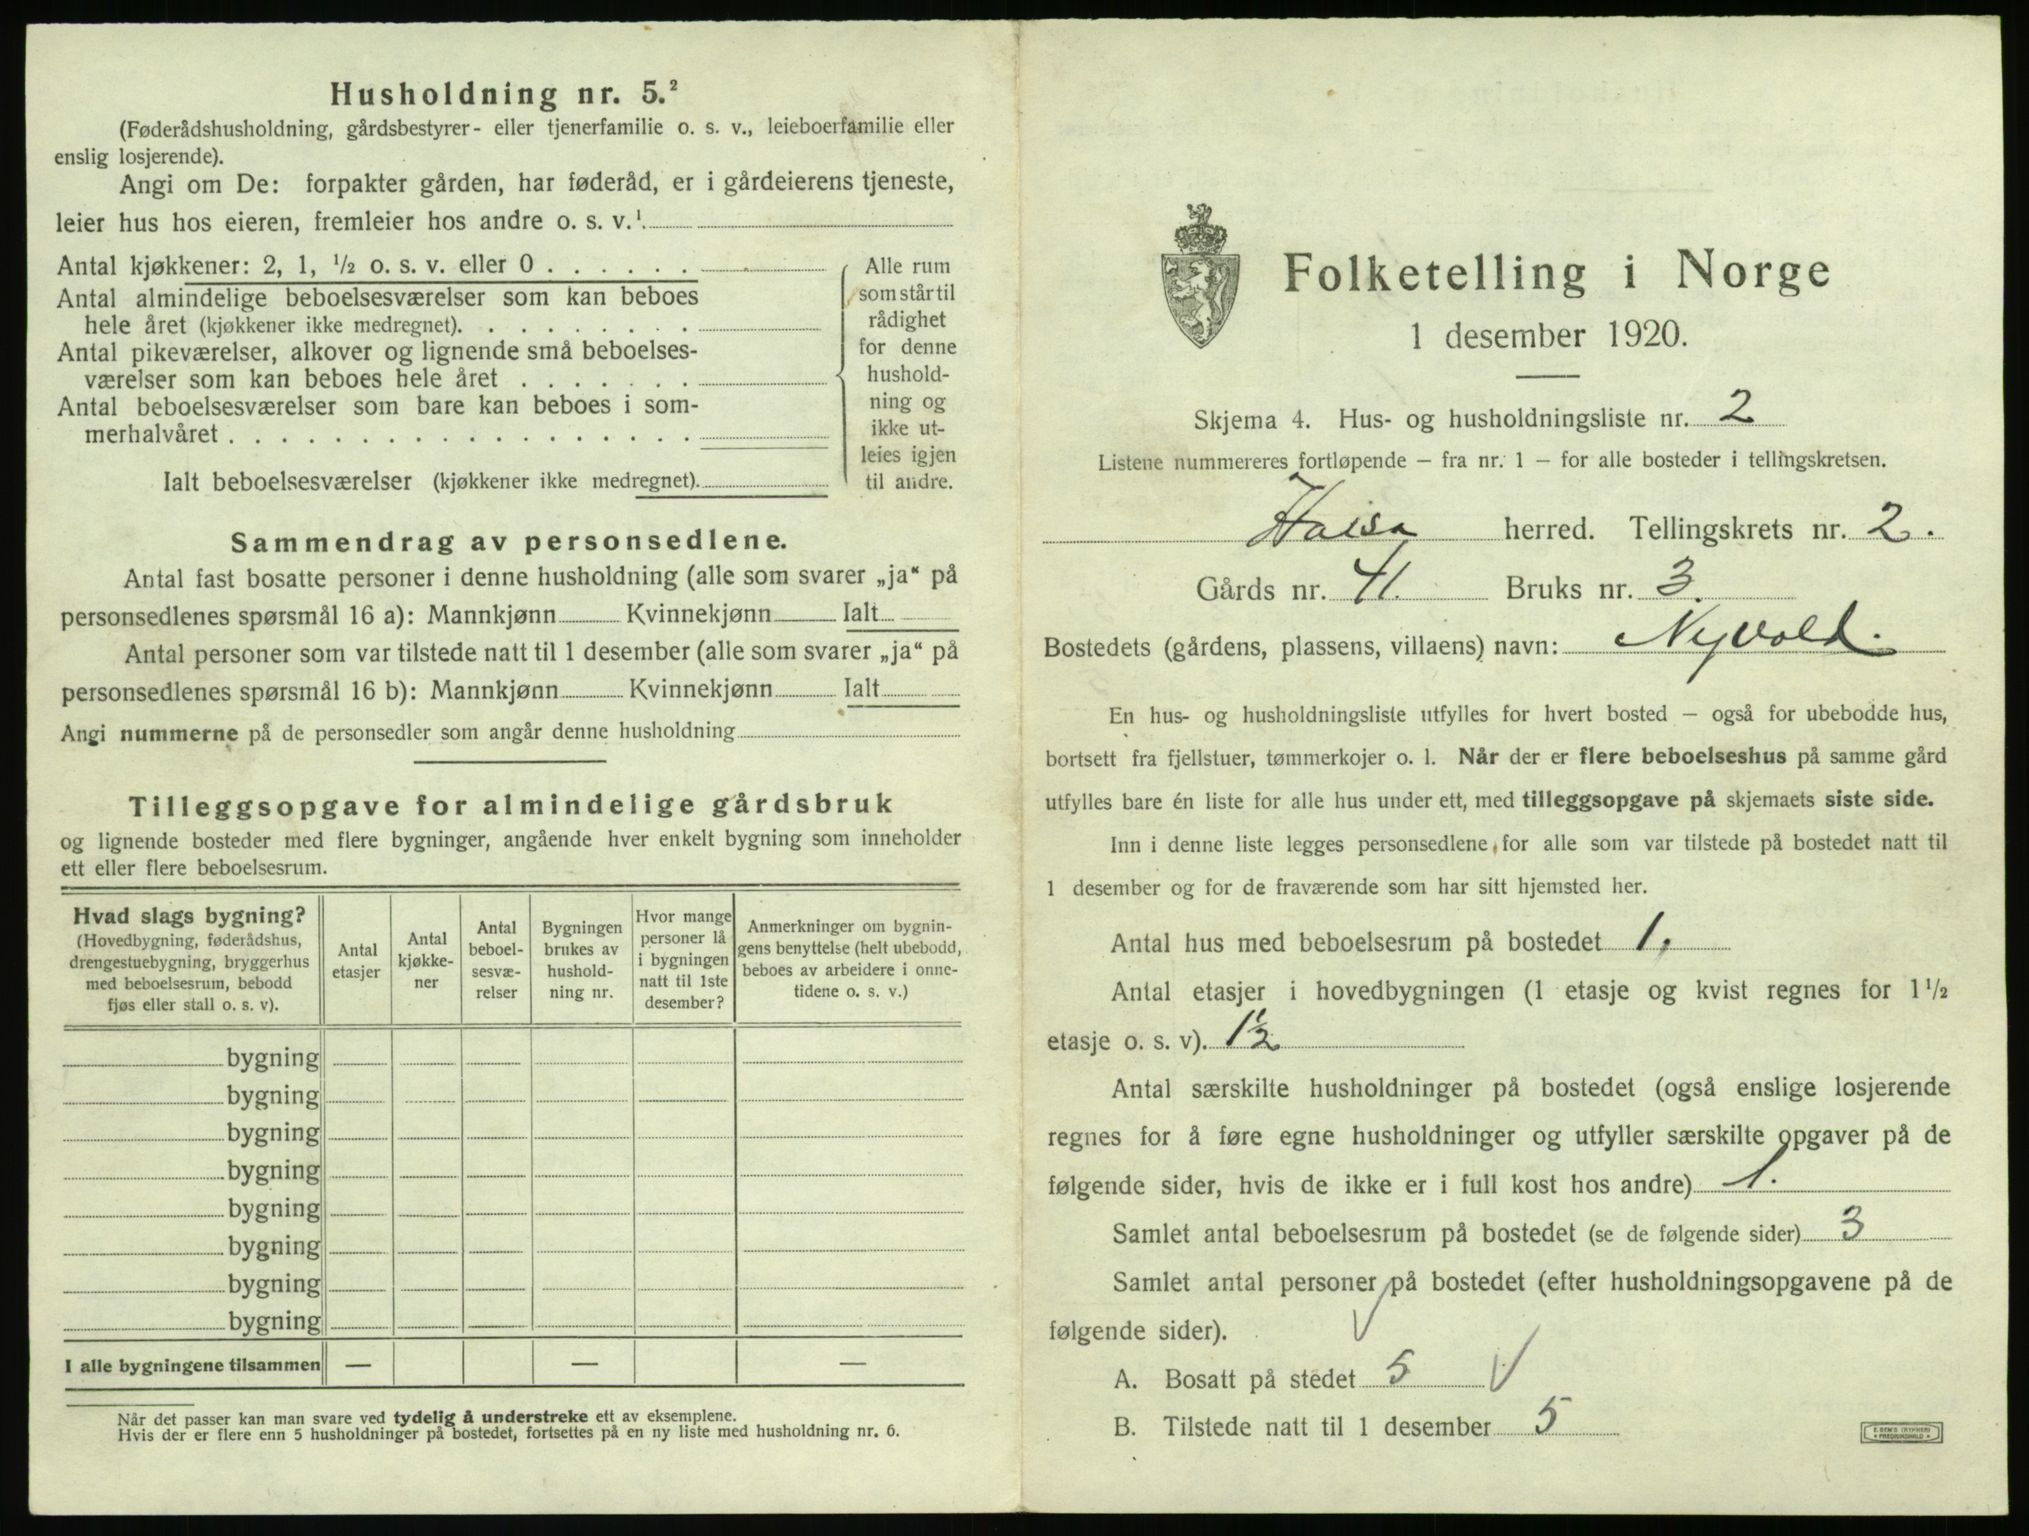 Husholdning nr. 5.²
(Føderådshusholdning, gårdsbestyrer- eller tjenerfamilie o. s. v., leieboerfamilie eller
enslig losjerende).
Angi om De: forpakter gården, har føderåd, er i gårdeierens tjeneste,
leier hus hos eieren, fremleier hos andre o. s. v.¹
Antal kjøkkener: 2, 1, ½ o. s. v. eller 0 . . . . . .
Antal almindelige beboelsesværelser som kan beboes
hele året (kjøkkener ikke medregnet). . . . . . . . .
Antal pikeværelser, alkover og lignende små beboelses-
værelser som kan beboes hele året . . . . . . .
Antal beboelsesværelser som bare kan beboes i som-
merhalvåret . . . . . . . . . . . . . . . . . .
Ialt beboelsesværelser (kjøkkener ikke medregnet).
Alle rum
som står til
rådighet
for denne
hushold-
ning og
ikke ut-
leies igjen
til andre.
Sammendrag av personsedlene.
Antal fast bosatte personer i denne husholdning (alle som svarer „ja“ på
personsedlenes spørsmål 16 a): Mannkjønn Kvinnekjønn Ialt
Antal personer som var tilstede natt til 1 desember (alle som svarer „ja“ på
personsedlenes spørsmål 16 b): Mannkjønn Kvinnekjønn Ialt
Angi nummerne på de personsedler som angår denne husholdning
Tilleggsopgave for almindelige gårdsbruk
og lignende bosteder med flere bygninger, angående hver enkelt bygning som inneholder
ett eller flere beboelsesrum.
Hvad slags bygning?
(Hovedbygning, føderådshus,
drengestuebygning, bryggerhus
med beboelsesrum, bebodd
fjøs eller stall o. s. v).
Antal
etasjer
Antal
kjøkke-
ner
Antal
beboel-
sesvæ-
relser
Bygningen
brukes av
hushold-
ning nr.
Hvor mange
personer lå
i bygningen
natt til 1ste
desember?
Anmerkninger om bygnin-
gens benyttelse (helt ubebodd,
beboes av arbeidere i onne-
tidene o. s. v.)
bygning
bygning
bygning
bygning
bygning
bygning
bygning
bygning
I alle bygningene tilsammen — — —
Når det passer kan man svare ved tydelig å understreke ett av eksemplene.
Hvis der er flere enn 5 husholdninger på bostedet, fortsettes på en ny liste med husholdning nr. 6.
Folketelling i Norge
1 desember 1920.
Skjema 4. Hus- og husholdningsliste nr. 2
Listene nummereres fortløpende – fra nr. 1 – for alle bosteder i tellingskretsen.
Halsa herred. Tellingskrets nr. 2.
Gårds nr. 41. Bruks nr. 3.
Bostedets (gårdens, plassens, villaens) navn: Nyvold.
En hus- og husholdningsliste utfylles for hvert bosted – også for ubebodde hus,
bortsett fra fjellstuer, tømmerkojer o. l. Når der er flere beboelseshus på samme gård
utfylles bare én liste for alle hus under ett, med tilleggsopgave på skjemaets siste side.
Inn i denne liste legges personsedlene for alle som var tilstede på bostedet natt til
1 desember og for de fraværende som har sitt hjemsted her.
Antal hus med beboelsesrum på bostedet 1.
Antal etasjer i hovedbygningen (1 etasje og kvist regnes for 1½
etasje o. s. v). 1½
Antal særskilte husholdninger på bostedet (også enslige losjerende
regnes for å føre egne husholdninger og utfyller særskilte opgaver på de
følgende sider, hvis de ikke er i full kost hos andre) 1.
Samlet antal beboelsesrum på bostedet (se de følgende sider) 3
Samlet antal personer på bostedet (efter husholdningsopgavene på de
følgende sider).
A. Bosatt på stedet 5
B. Tilstede natt til 1 desember 5